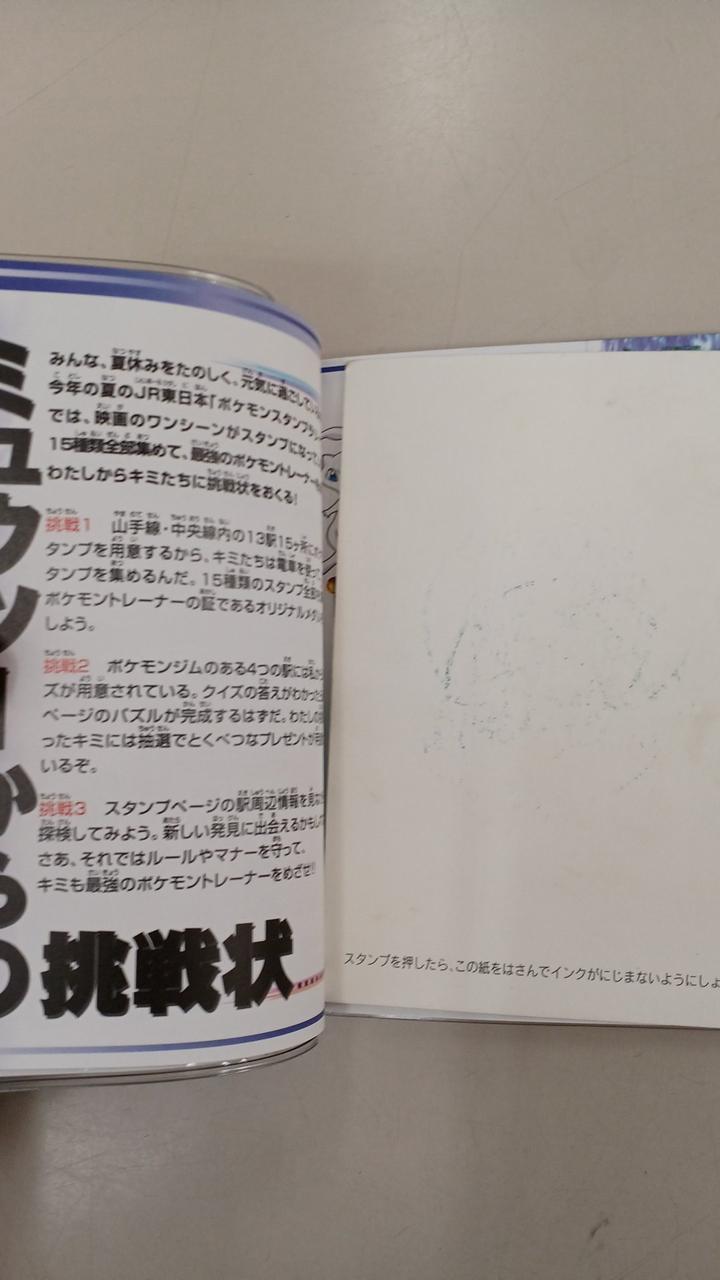 ミュウツーからの
挑戦状
みんな、夏休みをたのしく、元気に過ごして
今年の夏のJR東日本「ポケモンスタンプラ
では、映画のワンシーンがスタンプになって
15種類全部集めて、最強のポケモントレーナー
わたしからキミたちに挑戦状をおくる!
挑戦1 山手線・中央線内の13駅15ヶ所に
タンプを用意するから、キミたちは電車を使っ
タンプを集めるんだ。15種類のスタンプ全部
ポケモントレーナーの証であるオリジナルメダル
しよう。
挑戦2 ポケモンジムのある4つの駅には私か
ズが用意されている。クイズの答えがわかった
ページのパズルが完成するはずだ。わたしの
ったキミには抽選でとくべつなプレゼントが
いるぞ。
挑戦3 スタンプページの駅周辺情報を見な
探検してみよう。新しい発見に出会えるかもし
さあ、それではルールやマナーを守って、
キミも最強のポケモントレーナーをめざせ!!
スタンプを押したら、この紙をはさんでインクがにじまないようにしよ